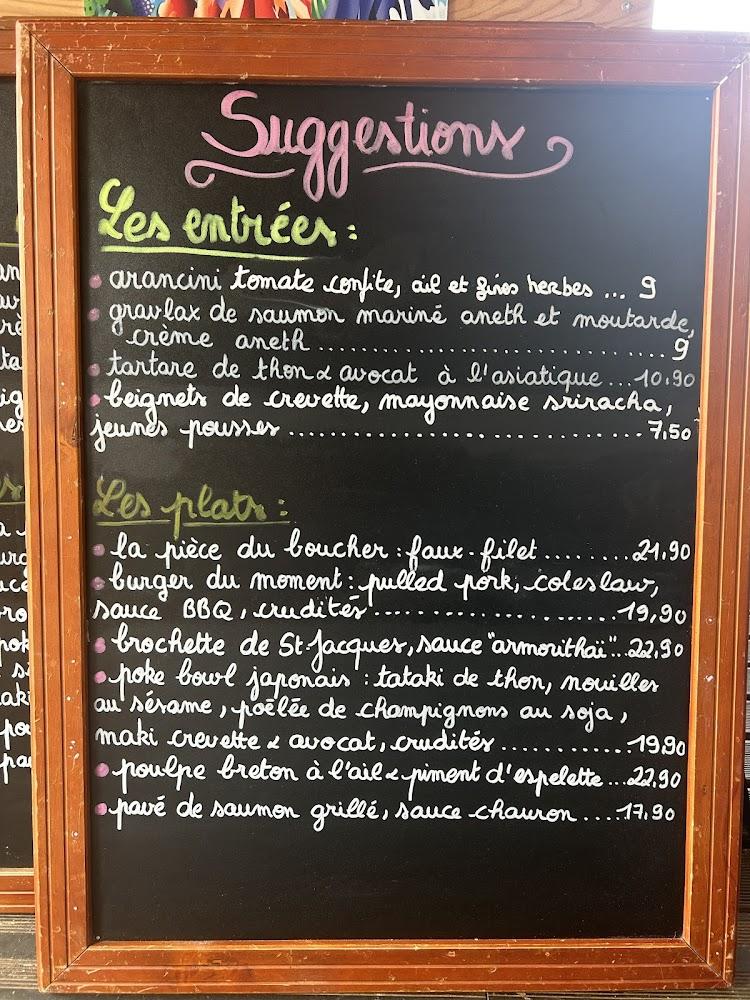 Suggestions
Les entrées :
arancini tomate confite, ail et fines herbes ... 9
gravlax de saumon mariné aneth et moutarde,
crème aneth ........................................ 9
tartare de thon & avocat à l'asiatique ... 10.90
beignets de crevette, mayonnaise sriracha,
jeunes pousses ........................................ 7,50
Les plats :
la pièce du boucher : faux-filet ......... 21.90
burger du moment : pulled pork, coleslaw,
sauce BBQ, crudités ........................ 19,90
brochette de St-Jacques, sauce "armorithaï" .. 22,90
poke bowl japonais : tataki de thon, nouilles
au sésame, poêlée de champignons au soja,
maki crevette & avocat, crudités ........... 19.90
poulpe breton à l'ail & piment d'espelette ... 22.90
pavé de saumon grillé, sauce chauron ..... 17.90